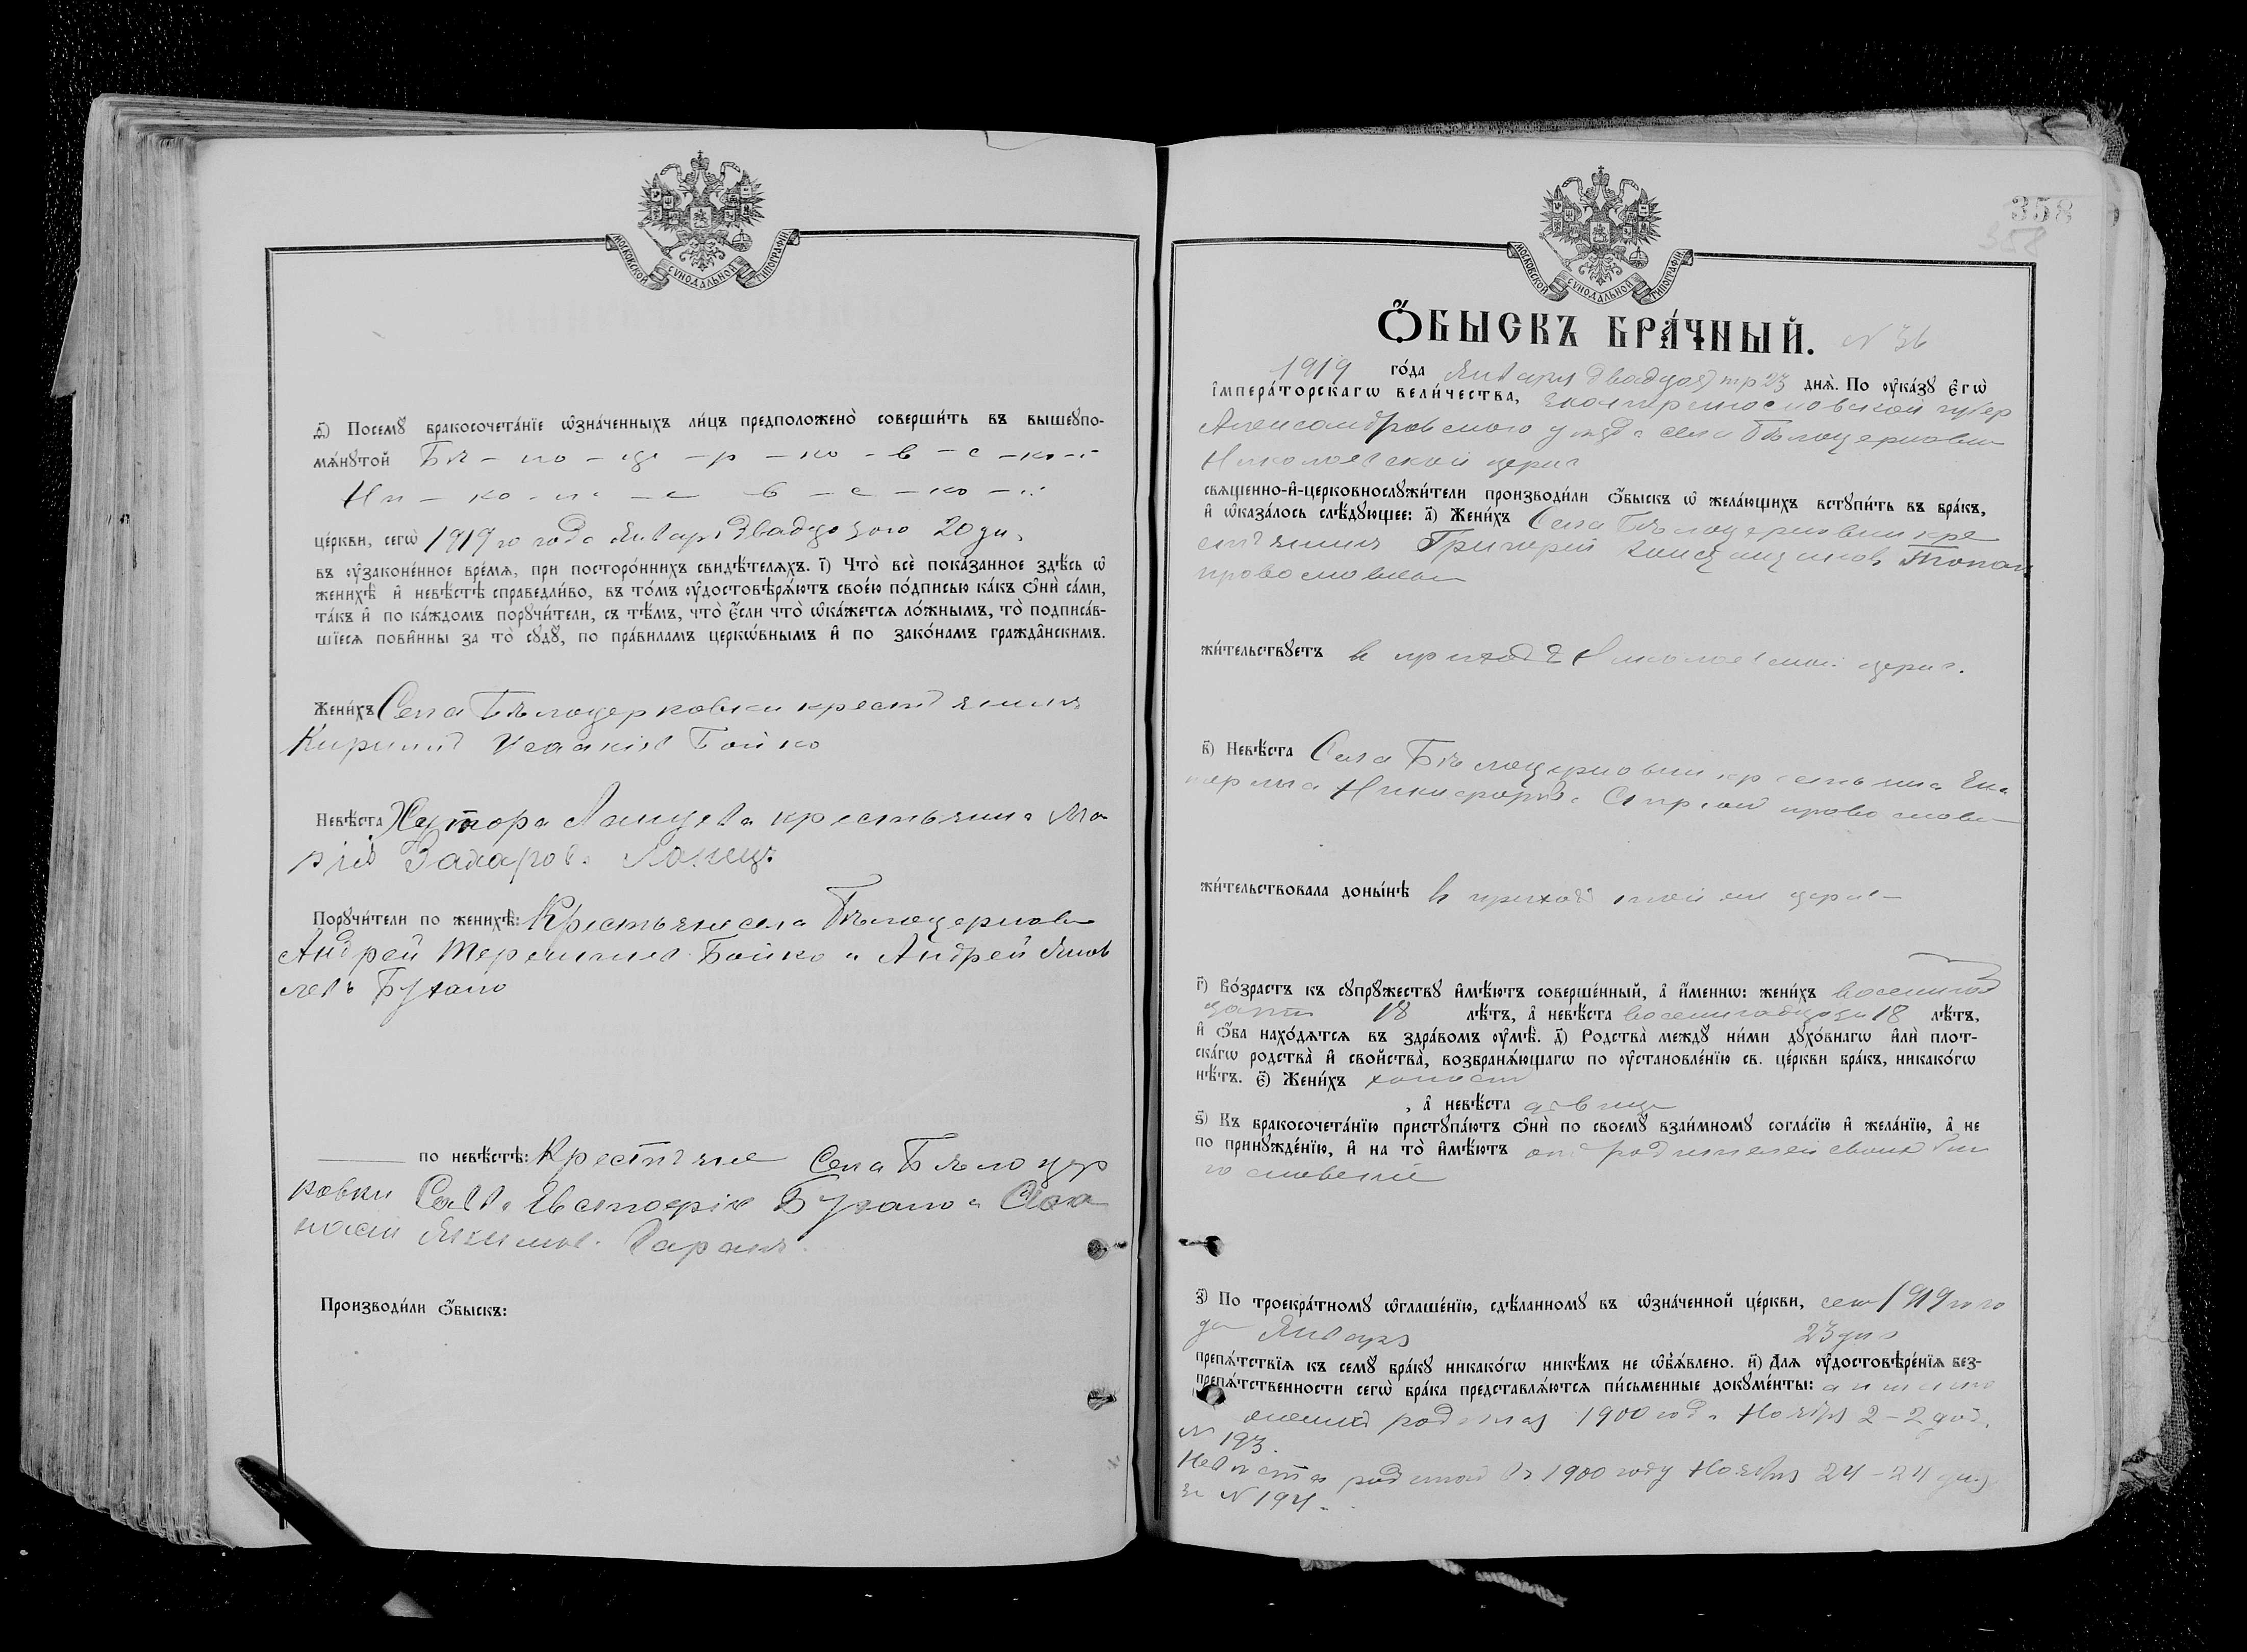 МОСКОВСКОЙ СѴНОДАЛЬНОЙ ТИПОГРАФІИ
д҃) Посемꙋ бракосочета́нїе ѡ҆зна́ченныхъ ли́цъ предположено̀ соверши́ть въ вышеꙋпо-
мѧ́нꙋтой Бѣ - ло - це - р - ко - в - с - ко - й
Ни - ко - ла - е - в - с - ко - й
це́ркви, сегѡ̀ 1919 го года Января двадцатаго 20 дн.
въ ᲂу҆зако́ненное вре́мѧ, при посторо́ннихъ свидѣ́телѧхъ. і҃) Что̀ всѐ пока́занное здѣ́сь ѡ҆
женихѣ̀ и҆ невѣ́стѣ справедли́во, въ то́мъ ᲂу҆достовѣрѧ́ютъ свое́ю по́дписью ка́къ ѻ҆нѝ са́ми,
та́къ и҆ по ка́ждомъ порꙋчи́тели, съ тѣ́мъ, что̀ є҆́сли что̀ ѡ҆ка́жетсѧ ло́жнымъ, то̀ подписа́в-
шїесѧ пови́нны за то̀ сꙋдꙋ̀, по пра́виламъ церкѡ́внымъ и҆ по зако́намъ гражда́нскимъ.
Жени́хъ Села Бѣлоцерковки крестьянинъ
Кириллъ Исаакіев Бойко
Невѣ́ста Хутора Ланцева крестьянка Ма
рія Захаров.
Порꙋчи́тели по женихѣ̀: Крестьяне села Бѣлоцерковки
Андрей Терентіев Бойко и Андрей Яков
левъ Бухало
по невѣ́стѣ: Крестьяне Села Бѣлоцер
ковки Савва Евстафіев Бухало и
Якимов.
Производи́ли ѻ҆́быскъ:
358
358
МОСКОВСКОЙ СѴНОДАЛЬНОЙ ТИПОГРАФІИ
Ѻ҆́БЫСКЪ БРА́ЧНЫЙ. N 36
1919 го́да Января двадцат тр 23 днѧ̀. По ᲂу҆ка́зꙋ Є҆гѡ̀
І҆мпера́торскагѡ вели́чества, Екатеринославской губер
Александровскаго уезда села Бѣлоцерковки
Николаевской церкв
свѧще́нно-и҆-церковнослꙋжи́тели производи́ли ѻ҆́быскъ ѡ҆ жела́ющихъ встꙋпи́ть въ бра́къ,
и҆ ѡ҆каза́лось слѣ́дꙋющее: а҃) Жени́хъ Села Бѣлоцерковки кре
стьянинъ Григорій Константинов
православнаго
жи́тельствꙋетъ въ приходѣ Николаевской церкв.
в҃) Невѣ́ста Села Бѣлоцерковки крестьянка Ека
терина Никифоров. православн
жи́тельствовала доны́нѣ въ приходѣ той же церкв
г҃) Во́зрастъ къ сꙋпрꙋ́жествꙋ и҆мѣ́ютъ соверше́нный, а҆ и҆́меннѡ: жени́хъ восемнад
цати 18 лѣ́тъ, а҆ невѣ́ста восемнадцати 18 лѣ́тъ,
и҆ ѻ҆́ба нахо́дѧтсѧ въ здра́вомъ ᲂу҆мѣ̀. д҃) Родства̀ междꙋ̀ ни́ми дꙋхо́внагѡ и҆лѝ плот-
ска́гѡ родства̀ и҆ свойства̀, возбранѧ́ющагѡ по ᲂу҆становле́нїю св. це́ркви бра́къ, никако́гѡ
нѣ́тъ. є҃) Жени́хъ холост
, а҆ невѣ́ста дѣвица
ѕ҃) Къ бракосочета́нїю пристꙋпа́ютъ ѻ҆нѝ по своемꙋ̀ взаи́мномꙋ согла́сїю и҆ жела́нїю, а҆ не
по принꙋжде́нїю, и҆ на то̀ и҆мѣ́ютъ от родителей своих бла
гословеніе
з҃) По троекра́тномꙋ ѡ҆глаше́нїю, сдѣ́ланномꙋ въ ѡ҆зна́ченной це́ркви, сего 1919 го го
да Января 23 дня
препѧ́тствїѧ къ семꙋ̀ бра́кꙋ никако́гѡ никѣ́мъ не ѡ҆б̾ѧ́влено. и҃) Длѧ ᲂу҆достовѣре́нїѧ без-
препѧ́тственности сегѡ̀ бра́ка представлѧ́ютсѧ пи́сьменные докꙋме́нты:
жених родился 1900 года Ноября 2 - 2 дня
N 193.
Невѣста родилась въ 1900 году Ноября 24 - 24 дня
за N 194.